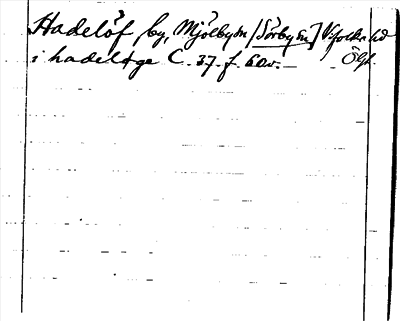 Hadelöf, by, Mjölby sn [Sörby sn] Vifolka hd
i hadeløge C. 37. f. 60v. — Ögl.